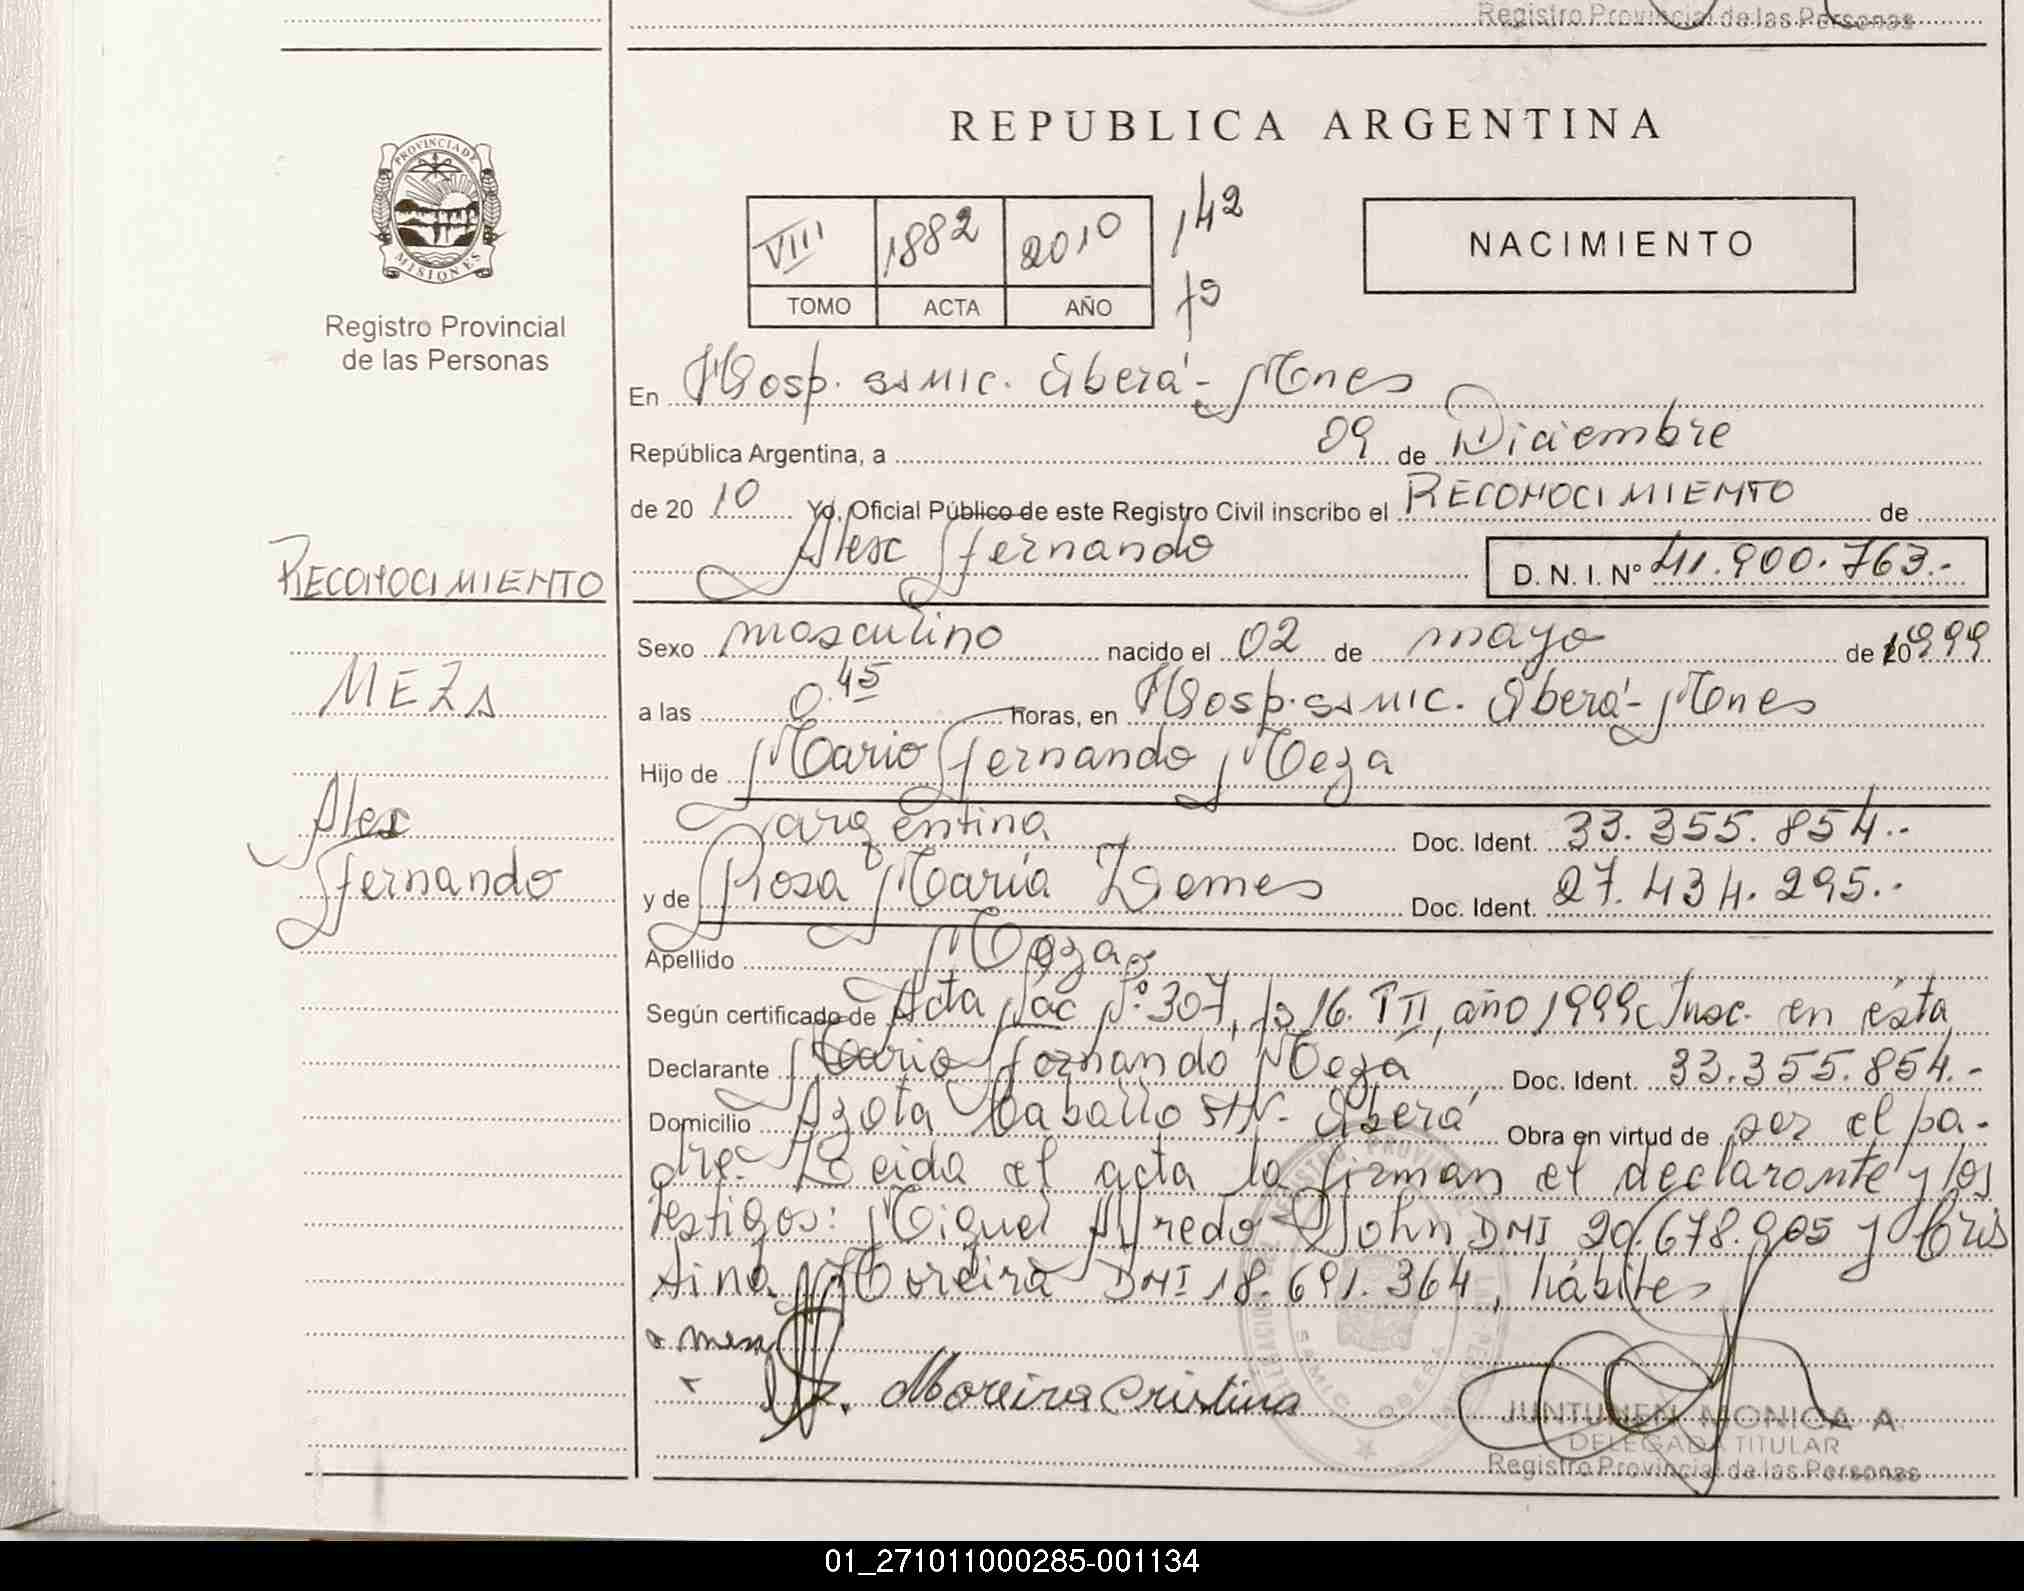 Registro Provincial de las Personas
REPUBLICA ARGENTINA
PROVINCIA DE
MISIONES
Registro Provincial
de las Personas
VIII 1882 2010 142
TOMO ACTA AÑO
NACIMIENTO
En Hosp. SAMIC. Oberá - Mnes
República Argentina, a 09 de Diciembre
de 20 10 Yo, Oficial Público de este Registro Civil inscribo el RECONOCIMIENTO de
Alex Fernando D. N. I. Nº 41.900.763.-
RECONOCIMIENTO
MEZA
Alex
Fernando
Sexo masculino nacido el 02 de mayo de 1999
a las 0.45 horas, en Hosp. SAMIC. Oberá - Mnes
Hijo de Mario Fernando Meza
argentina Doc. Ident. 33.355.854.-
y de Rosa María Lemes Doc. Ident. 27.434.295.-
Apellido Meza
Según certificado de Acta Nac Nº 307, fº 16. T II, año 1999 Insc. en ésta
Declarante Mario Fernando Meza Doc. Ident. 33.355.854.-
Domicilio Azota Caballo S/N - Oberá Obra en virtud de ser el pa-
dre. Leida el acta la firman el declarante y los
testigos: Miguel Alfredo John DNI 20.678.905 y Cris
tina Moreira DNI 18.691.364, hábiles
Meza
Moreira Cristina
SAMIC OBERA
JUNTUNEN MONICA A
DELEGADA TITULAR
Registro Provincial de las Personas
01_271011000285-001134